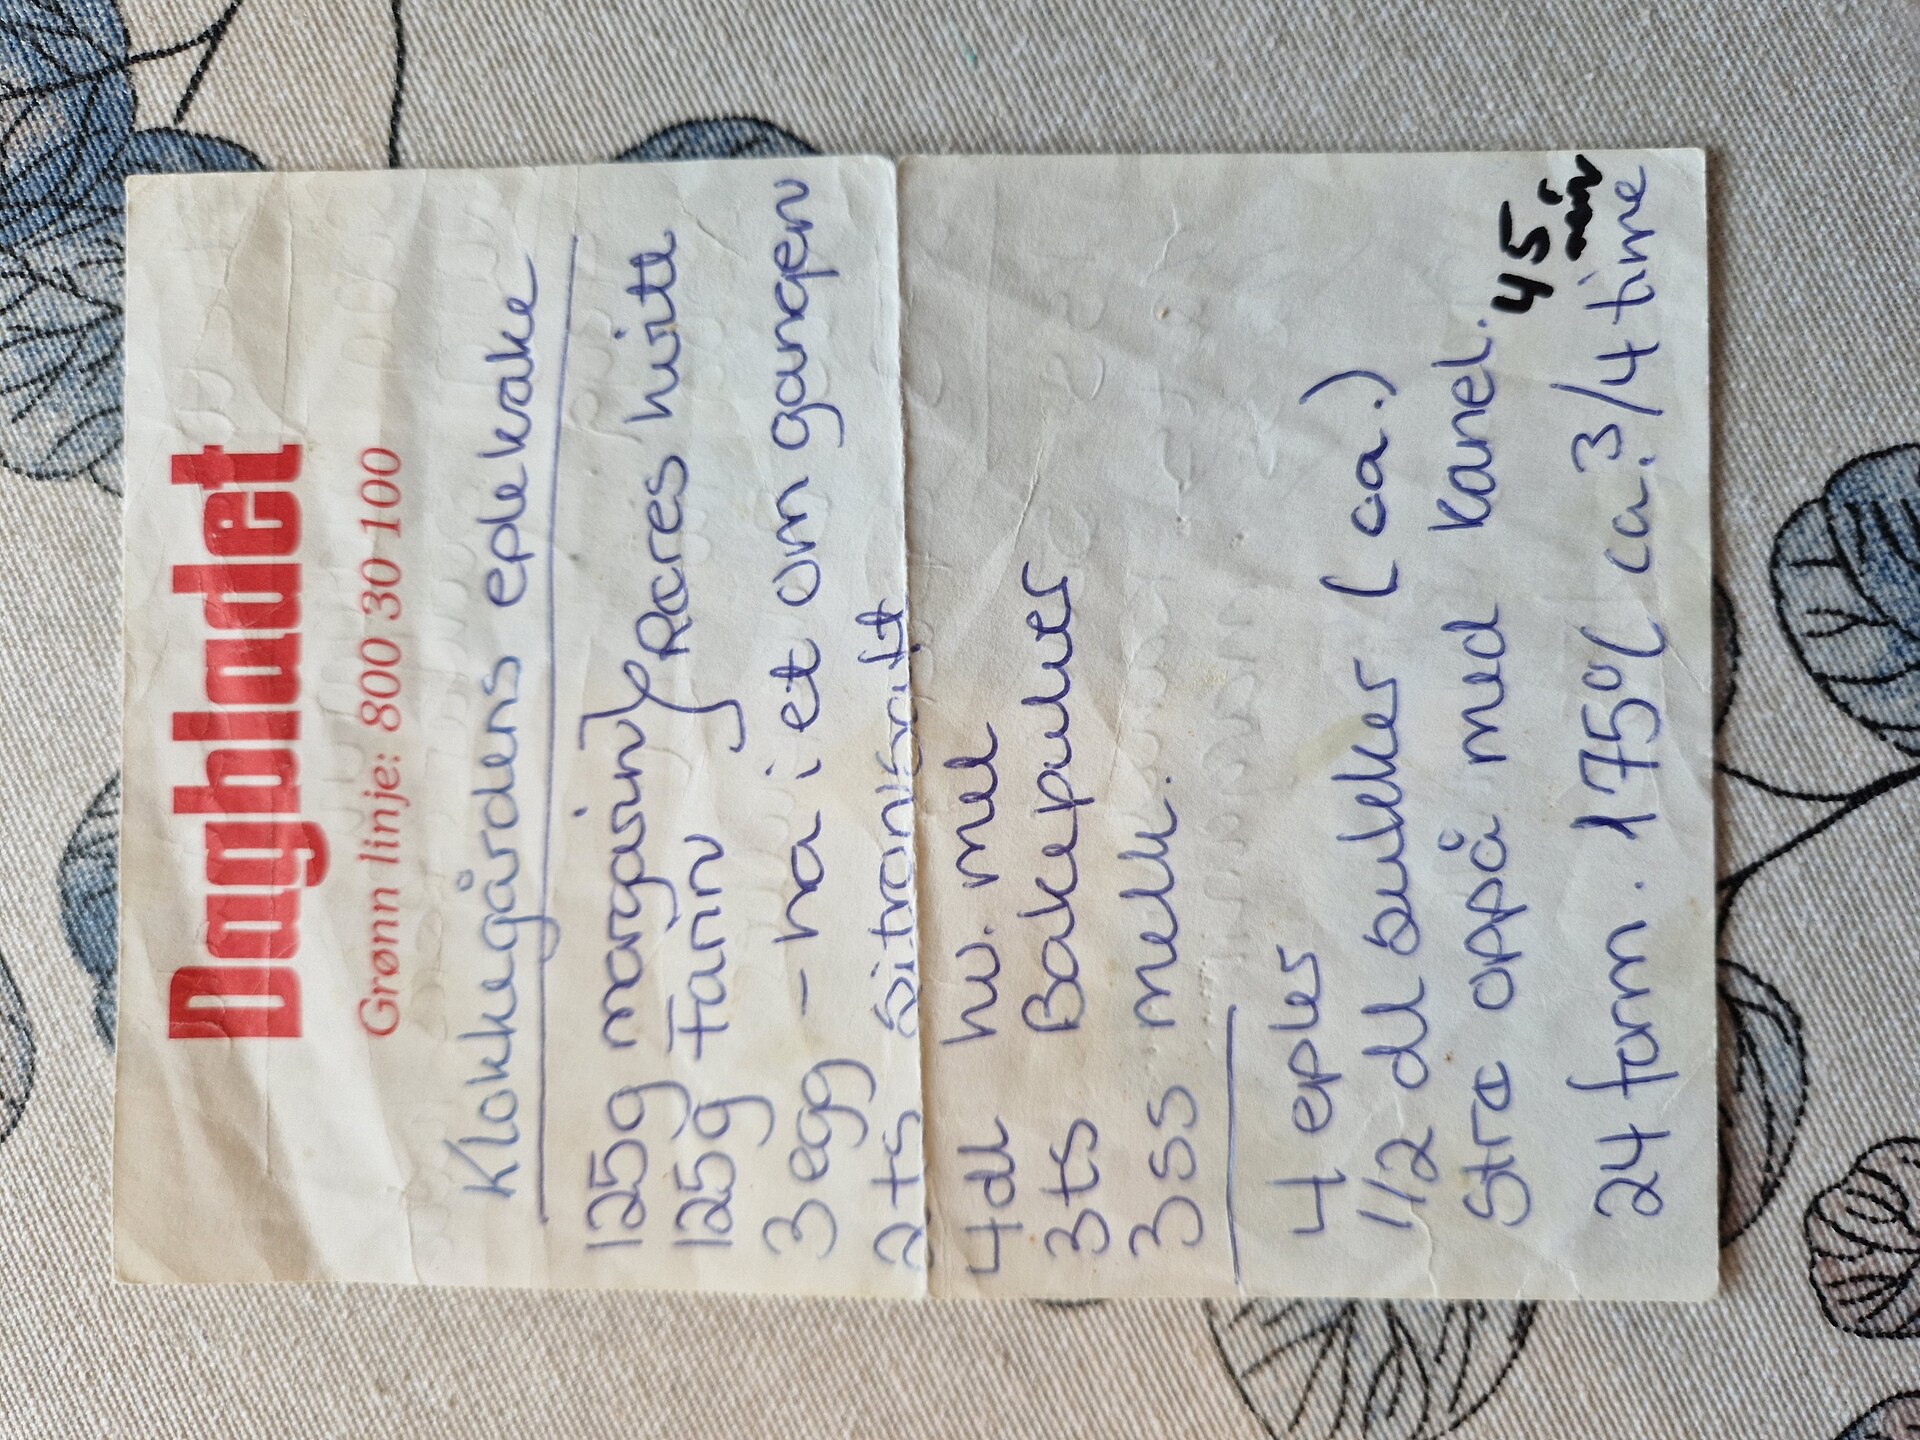 Dagbladet
Grønn linje: 800 30 100
Klokkegårdens eplekake
125g margarin } Røres hvitt
125g Farin
3 egg - ha i et om gangen
2 ts sitronsaft
4 dl hv. mel
3 ts Bakepulver
3 ss melk.
4 epler
1/2 dl sukker (ca.)
strø oppå med kanel.
45 min
24 form. 175°C ca. 3/4 time